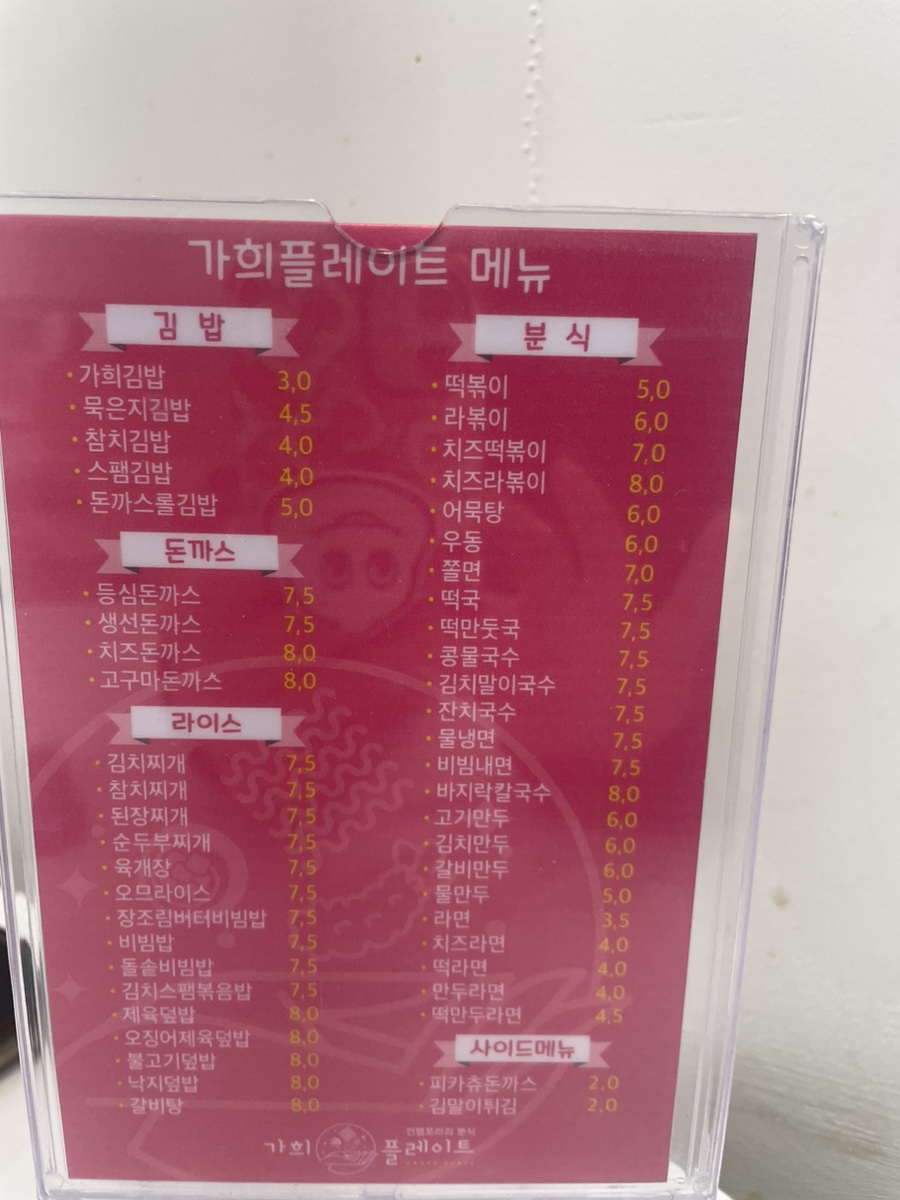 가희플레이트 메뉴
김 밥
• 가희김밥 3,0
• 묵은지김밥 4,5
• 참치김밥 4,0
• 스팸김밥 4,0
• 돈까스롤김밥 5,0
돈까스
• 등심돈까스 7,5
• 생선돈까스 7,5
• 치즈돈까스 8,0
• 고구마돈까스 8,0
라이스
• 김치찌개 7,5
• 참치찌개 7,5
• 된장찌개 7,5
• 순두부찌개 7,5
• 육개장 7,5
• 오므라이스 7,5
• 장조림버터비빔밥 7,5
• 비빔밥 7,5
• 돌솥비빔밥 7,5
• 김치스팸볶음밥 7,5
• 제육덮밥 8,0
• 오징어제육덮밥 8,0
• 불고기덮밥 8,0
• 낙지덮밥 8,0
• 갈비탕 8,0
분 식
• 떡볶이 5,0
• 라볶이 6,0
• 치즈떡볶이 7,0
• 치즈라볶이 8,0
• 어묵탕 6,0
• 우동 6,0
• 쫄면 7,0
• 떡국 7,5
• 떡만둣국 7,5
• 콩물국수 7,5
• 김치말이국수 7,5
• 잔치국수 7,5
• 물냉면 7,5
• 비빔내면 7,5
• 바지락칼국수 8,0
• 고기만두 6,0
• 김치만두 6,0
• 갈비만두 6,0
• 물만두 5,0
• 라면 3,5
• 치즈라면 4,0
• 떡라면 4,0
• 만두라면 4,0
• 떡만두라면 4,5
사이드메뉴
• 피카츄돈까스 2,0
• 김말이튀김 2,0
컨템포러리 분식
가희 플레이트